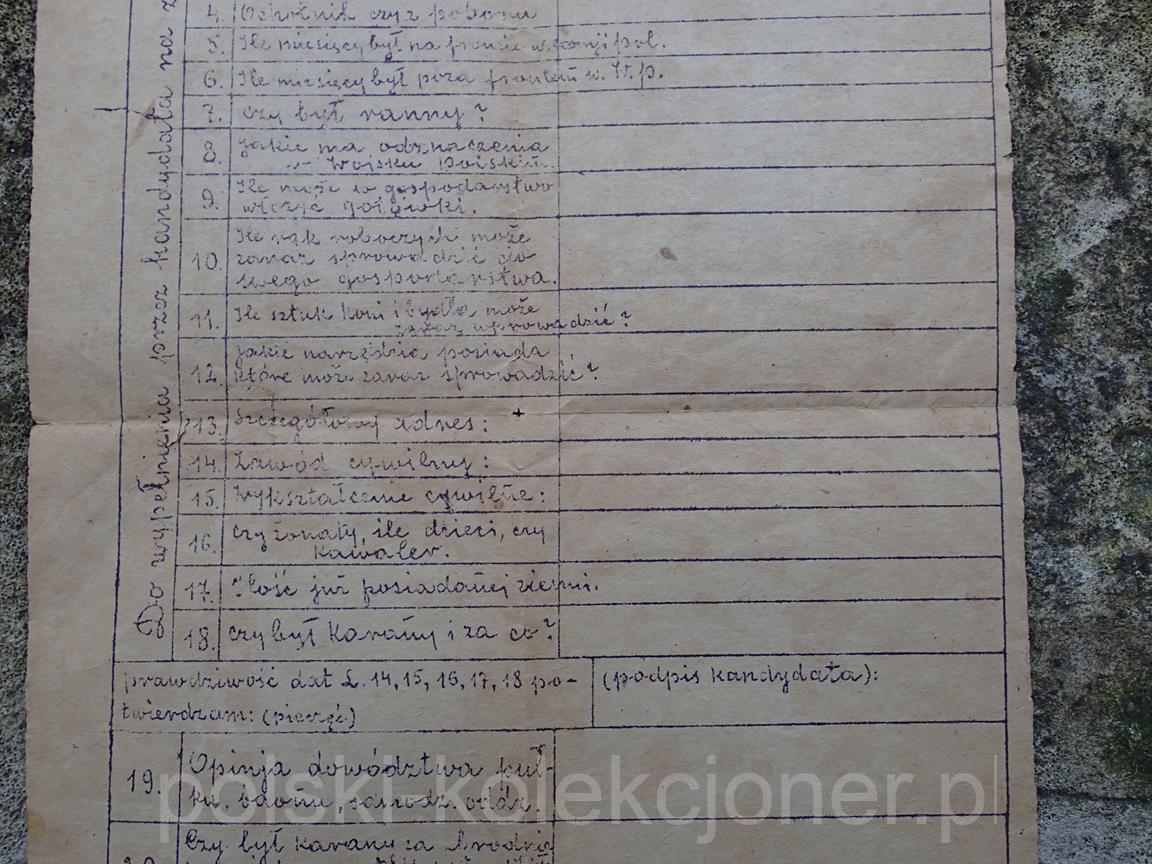 Do wypełnienia przez kandydata na
4. Ochotnik czy z poboru
5. Ile miesięcy był na froncie w pol.
6. Ile miesięcy był poza frontem w. W.p.
7. czy był ranny?
8. Jakie ma odznaczenia
w Wojsku Polskim.
9. Ile może w gospodarstwo
gotówki.
10. Ile rąk roboczych może
zaraz sprowadzić do
swego gospodarstwa.
11. Ile sztuk koni i bydła może
zaraz wprowadzić?
12. Jakie narzędzia posiada
które może zaraz sprowadzić?
13. Szczegółowy adres:
14. Zawód cywilny:
15. Wykształcenie cywilne:
16. czy żonaty, ile dzieci, czy
kawaler.
17. Ilość już posiadanej ziemi.
18. czy był karany i za co?
prawdziwość dat L. 14, 15, 16, 17, 18 po-
twierdzam: (pieczęć)
(podpis kandydata):
19. Opinja dowództwa puł-
ku. baonu, samodz. oddz.
Czy był karany za
polski-kolekcjoner.pl